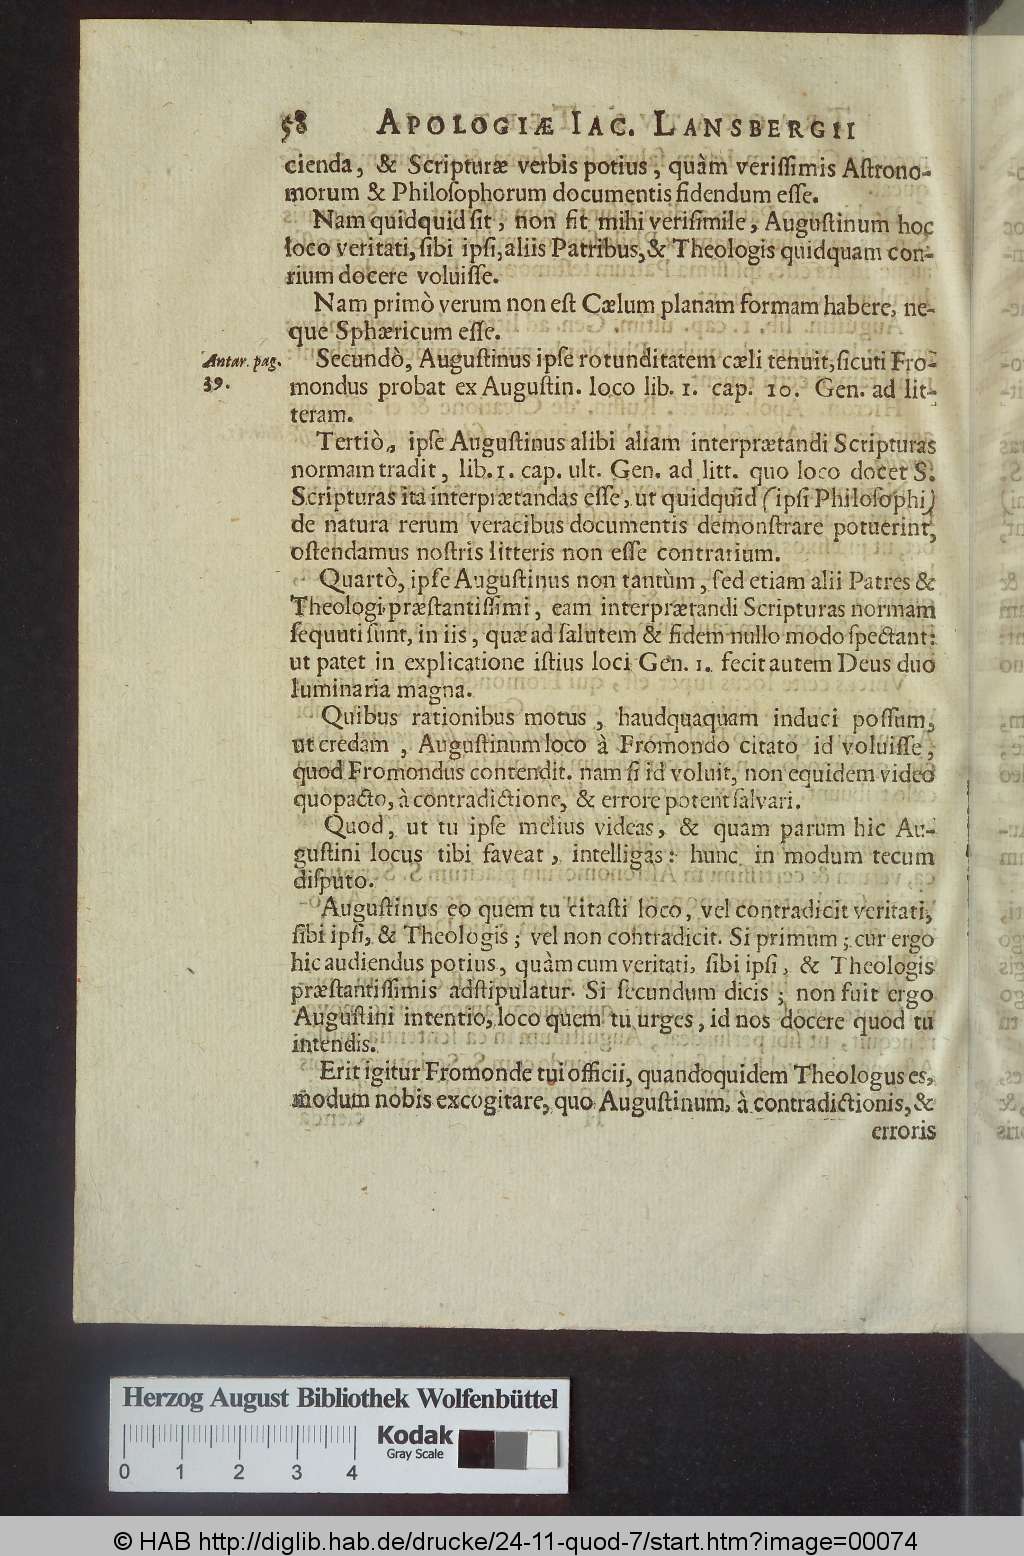 58 APOLOGIÆ IAC. LANSBERGII
cienda, & Scripturæ verbis potius, quàm verissimis Astrono-
morum & Philosophorum documentis fidendum esse.
Nam quidquid sit, non fit mihi verisimile, Augustinum hoc
loco veritati, sibi ipsi, aliis Patribus, & Theologis quidquam con-
rium docere voluisse.
Nam primò verum non est Cælum planam formam habere, ne-
que Sphæricum esse.
Antar. pag.
39.
Secundò, Augustinus ipse rotunditatem cæli tenuit, sicuti Fro-
mondus probat ex Augustin. loco lib. 1. cap. 10. Gen. ad lit-
teram.
Tertiò, ipse Augustinus alibi aliam interprætandi Scripturas
normam tradit, lib. 1. cap. ult. Gen. ad litt. quo loco docet S.
Scripturas ita interprætandas esse, ut quidquid (ipsi Philosophi)
de natura rerum veracibus documentis demonstrare potuerint,
ostendamus nostris litteris non esse contrarium.
Quartò, ipse Augustinus non tantùm, sed etiam alii Patres &
Theologi præstantissimi, eam interprætandi Scripturas normam
sequuti sunt, in iis, quæ ad salutem & fidem nullo modo spectant:
ut patet in explicatione istius loci Gen. 1. fecit autem Deus duo
luminaria magna.
Quibus rationibus motus, haudquaquam induci possum,
ut credam, Augustinum loco à Fromondo citato id voluisse,
quod Fromondus contendit. nam si id voluit, non equidem video
quopacto, à contradictione, & errore potent salvari.
Quod, ut tu ipse melius videas, & quam parum hic Au-
gustini locus tibi faveat, intelligas: hunc in modum tecum
disputo.
Augustinus eo quem tu citasti loco, vel contradicit veritati,
sibi ipsi, & Theologis; vel non contradicit. Si primum; cur ergo
hic audiendus potius, quàm cum veritati, sibi ipsi, & Theologis
præstantissimis adstipulatur. Si secundum dicis; non fuit ergo
Augustini intentio, loco quem tu urges, id nos docere quod tu
intendis.
Erit igitur Fromonde tui officii, quandoquidem Theologus es,
modum nobis excogitare, quo Augustinum, à contradictionis, &
erroris
Herzog August Bibliothek Wolfenbüttel
Kodak
Gray Scale
0 1 2 3 4
© HAB http://diglib.hab.de/drucke/24-11-quod-7/start.htm?image=00074